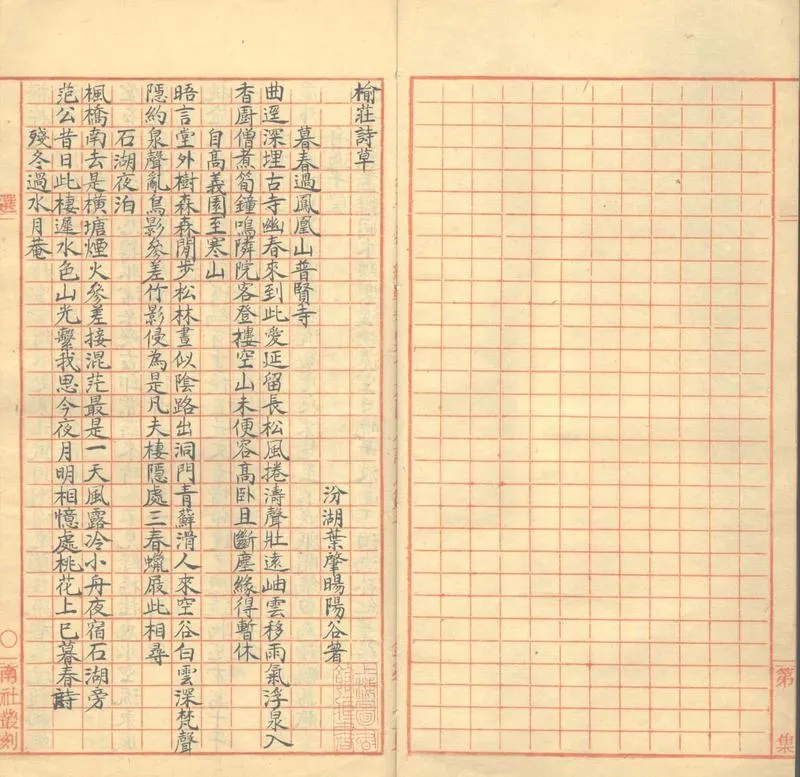 第 集
榆莊詩草
汾湖葉肇暘陽谷著
暮春過鳳凰山普賢寺
曲逕深埋古寺幽春來到此愛延留長松風捲濤聲壯遠岫雲移雨氣浮泉入
香厨僧煮筍鐘鳴隣院客登樓空山未便容高卧且斷塵緣得暫休
自高義園至寒山
晤言堂外樹森森閒步松林晝似陰路出洞門青蘚滑人來空谷白雲深梵聲
隱約泉聲亂鳥影參差竹影侵為是凡夫棲隱處三春蠟屐此相尋
石湖夜泊
楓橋南去是橫塘煙火參差接混茫最是一天風露冷小舟夜宿石湖旁
范公昔日此棲遲水色山光繫我思今夜月明相憶處桃花上巳暮春詩
殘冬過水月菴
選 〇 南社叢刻